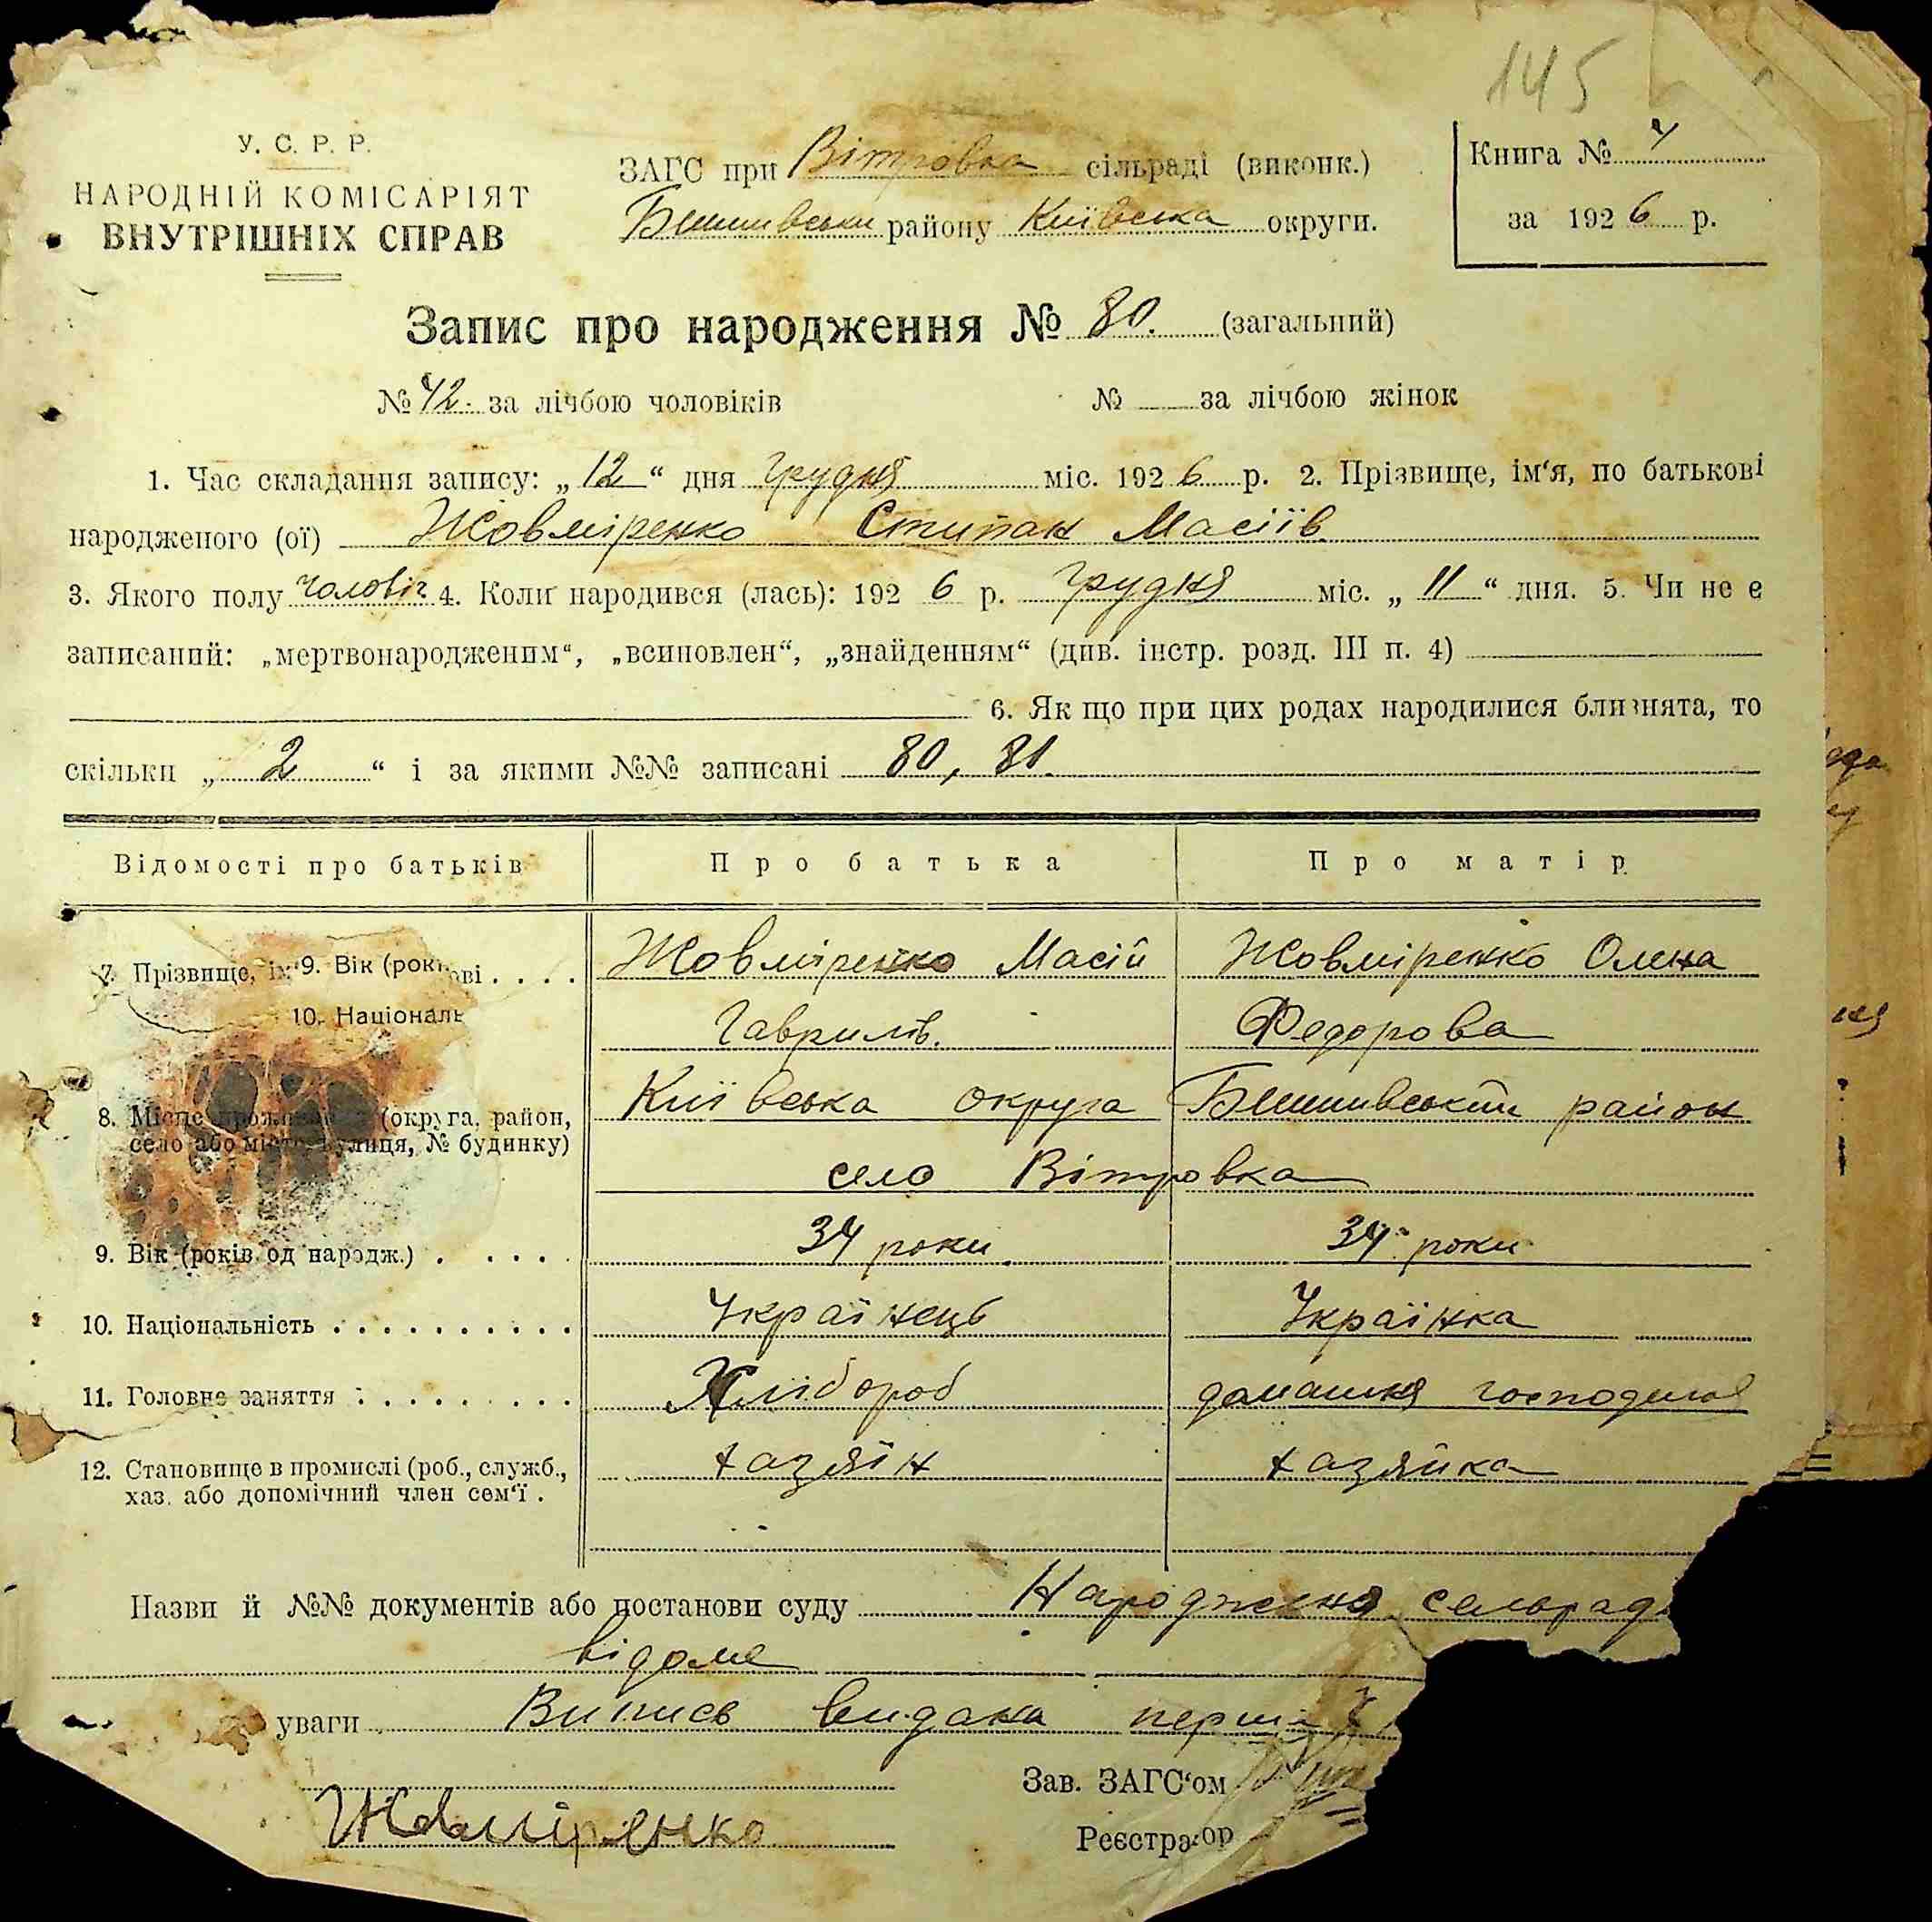 145
У. С. Р. Р.
НАРОДНІЙ КОМІСАРІЯТ
ВНУТРІШНІХ СПРАВ
ЗАГС при Вітровка сільраді (виконк.)
Бишивськи району Київська округи.
Книга № 4
за 1926 р.
Запис про народження № 80. (загальний)
№ 42. за лічбою чоловіків № за лічбою жінок
1. Час складання запису: „12“ дня грудня міс. 1926 р. 2. Прізвище, ім‘я, по батькові
народженого (ої) Жовміренко Стипан Масіїв.
3. Якого полу чоловіч 4. Коли народився (лась): 1926 р. грудня міс. „11“ дня. 5. Чи не є
записаний: „мертвонародженим“, „всиновлен“, „знайденням“ (див. інстр. розд. III п. 4)
6. Як що при цих родах народилися близнята, то
скільки „2“ і за якими №№ записані 80, 81.
Відомості про батьків Про батька Про матір
7. Прізвище, ім 9. Вік (рок ові . . . . Жовміренко Масій Жовміренко Олена
10. Національ Гаврилів. Федорова
8. Місце (округа, район, Київська округа Бишивський район
село або місто вулиця, № будинку) село Вітровка
9. Вік (років од народж.) . . . . . 34 роки 34 роки
10. Національність . . . . . . . . . . Українець Українка
11. Головне заняття . . . . . . . . . Хлібороб домашня
12. Становище в промислі (роб., служб., хазяїн хазяйка
хаз. або допомічний член сем‘ї .
Назви й №№ документів або постанови суду Народження сельрад
відоме
уваги Випись видана перша
Зав. ЗАГС‘ом
Жовміренко
Реєстратор